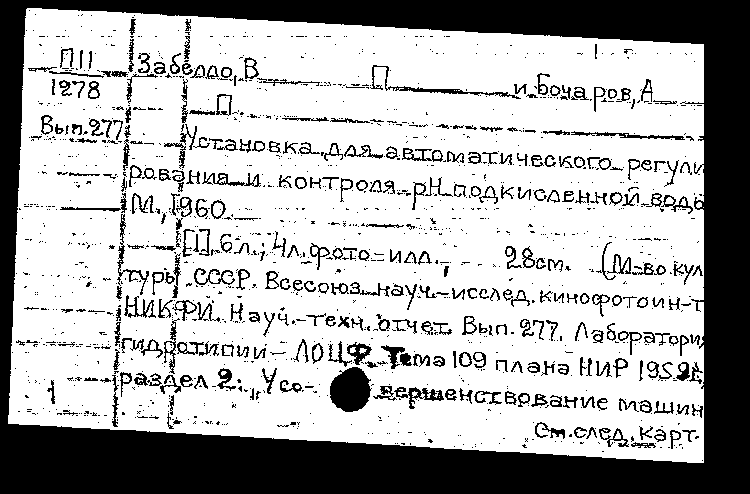 П11 Забелло, В П и Бочаров, А
1278 П
Вып.277 Установка для автоматического регули
рования и контроля рН подкисленной воды
М., 1960.
[1], 6 л.; 4 л. фото-илл., 28 см. (М-во куль
туры СССР. Всесоюз. науч.-исслед. кинофотоин-т
НИКФИ. Науч.-техн. отчет. Вып. 277. Лаборатория
гидротипии - ЛОЦФ. Тема 109 плана НИР 1959г.,
раздел 2: „Усо- вершенствование машин
См. след. карт.